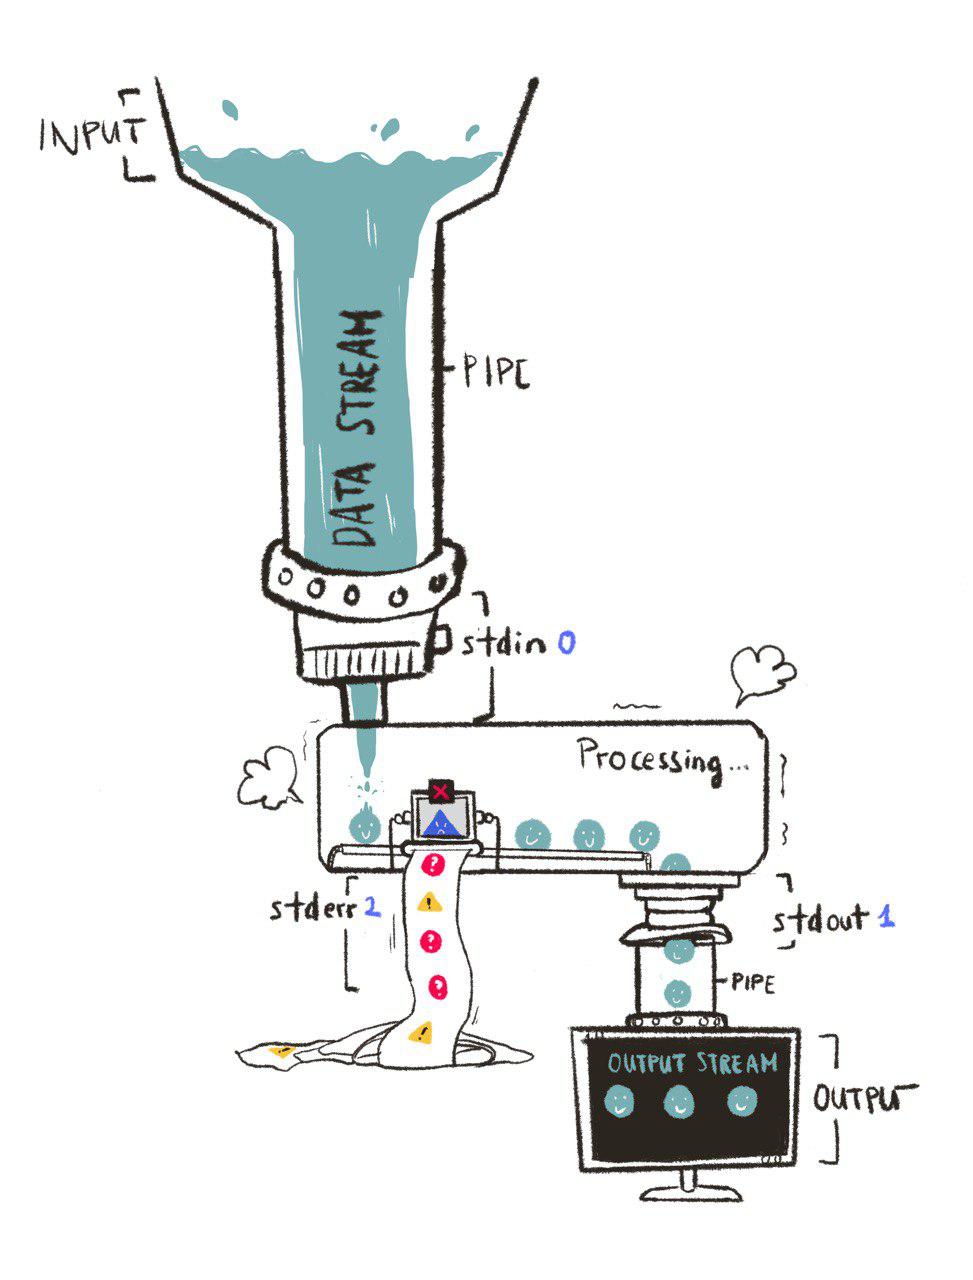 INPUT
DATA STREAM
PIPE
stdin 0
Processing...
stderr 2
stdout 1
PIPE
OUTPUT STREAM
OUTPUT